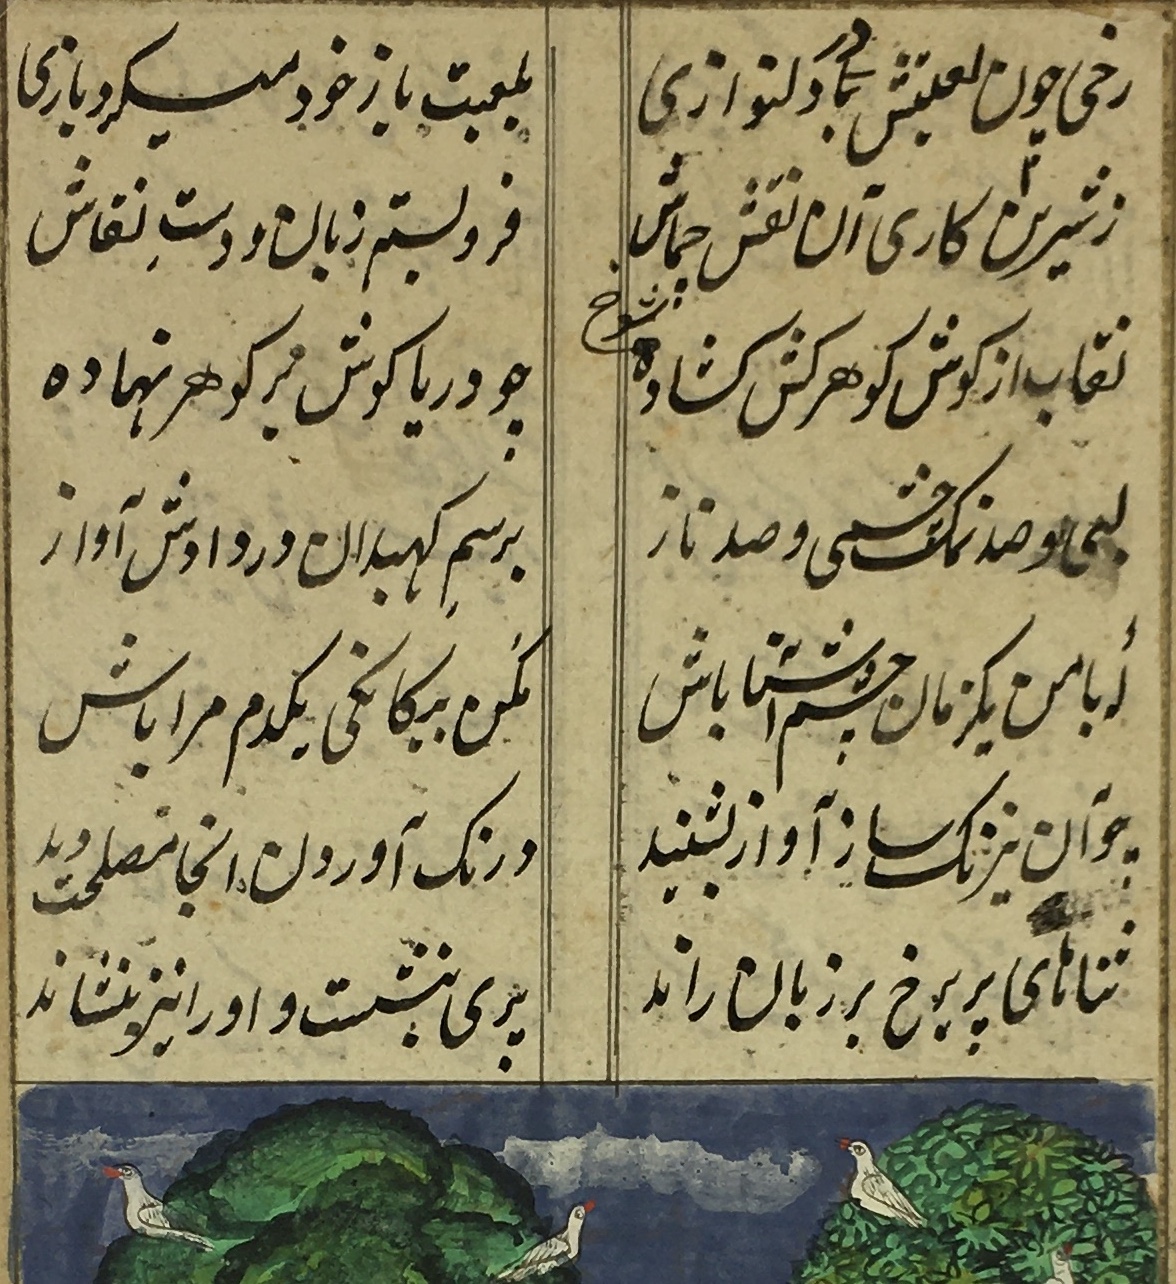 رخی چون لعبتش در دلنوازی بلعبت باز خود میکرد بازی
ز شیرین کاری آن نقش جماش فروبستم زبان و دست نقاش
شوخ
نقاب از کوش کوهرکش کشاده چو دریا کوش بر کوهر نهاده
لبی و صد نمک چشمی و صد ناز برسم کهبدان در دادش آواز
با من یکزمان چشم آشنا باش مکن بیکانکی یکدم مرا باش
چو آن نیرنک ساز آواز بشنید درنک آوردن انجا مصلحت دید
ثناهای پریرخ بر زبان راند پری بنشست و او را نیز بنشاند